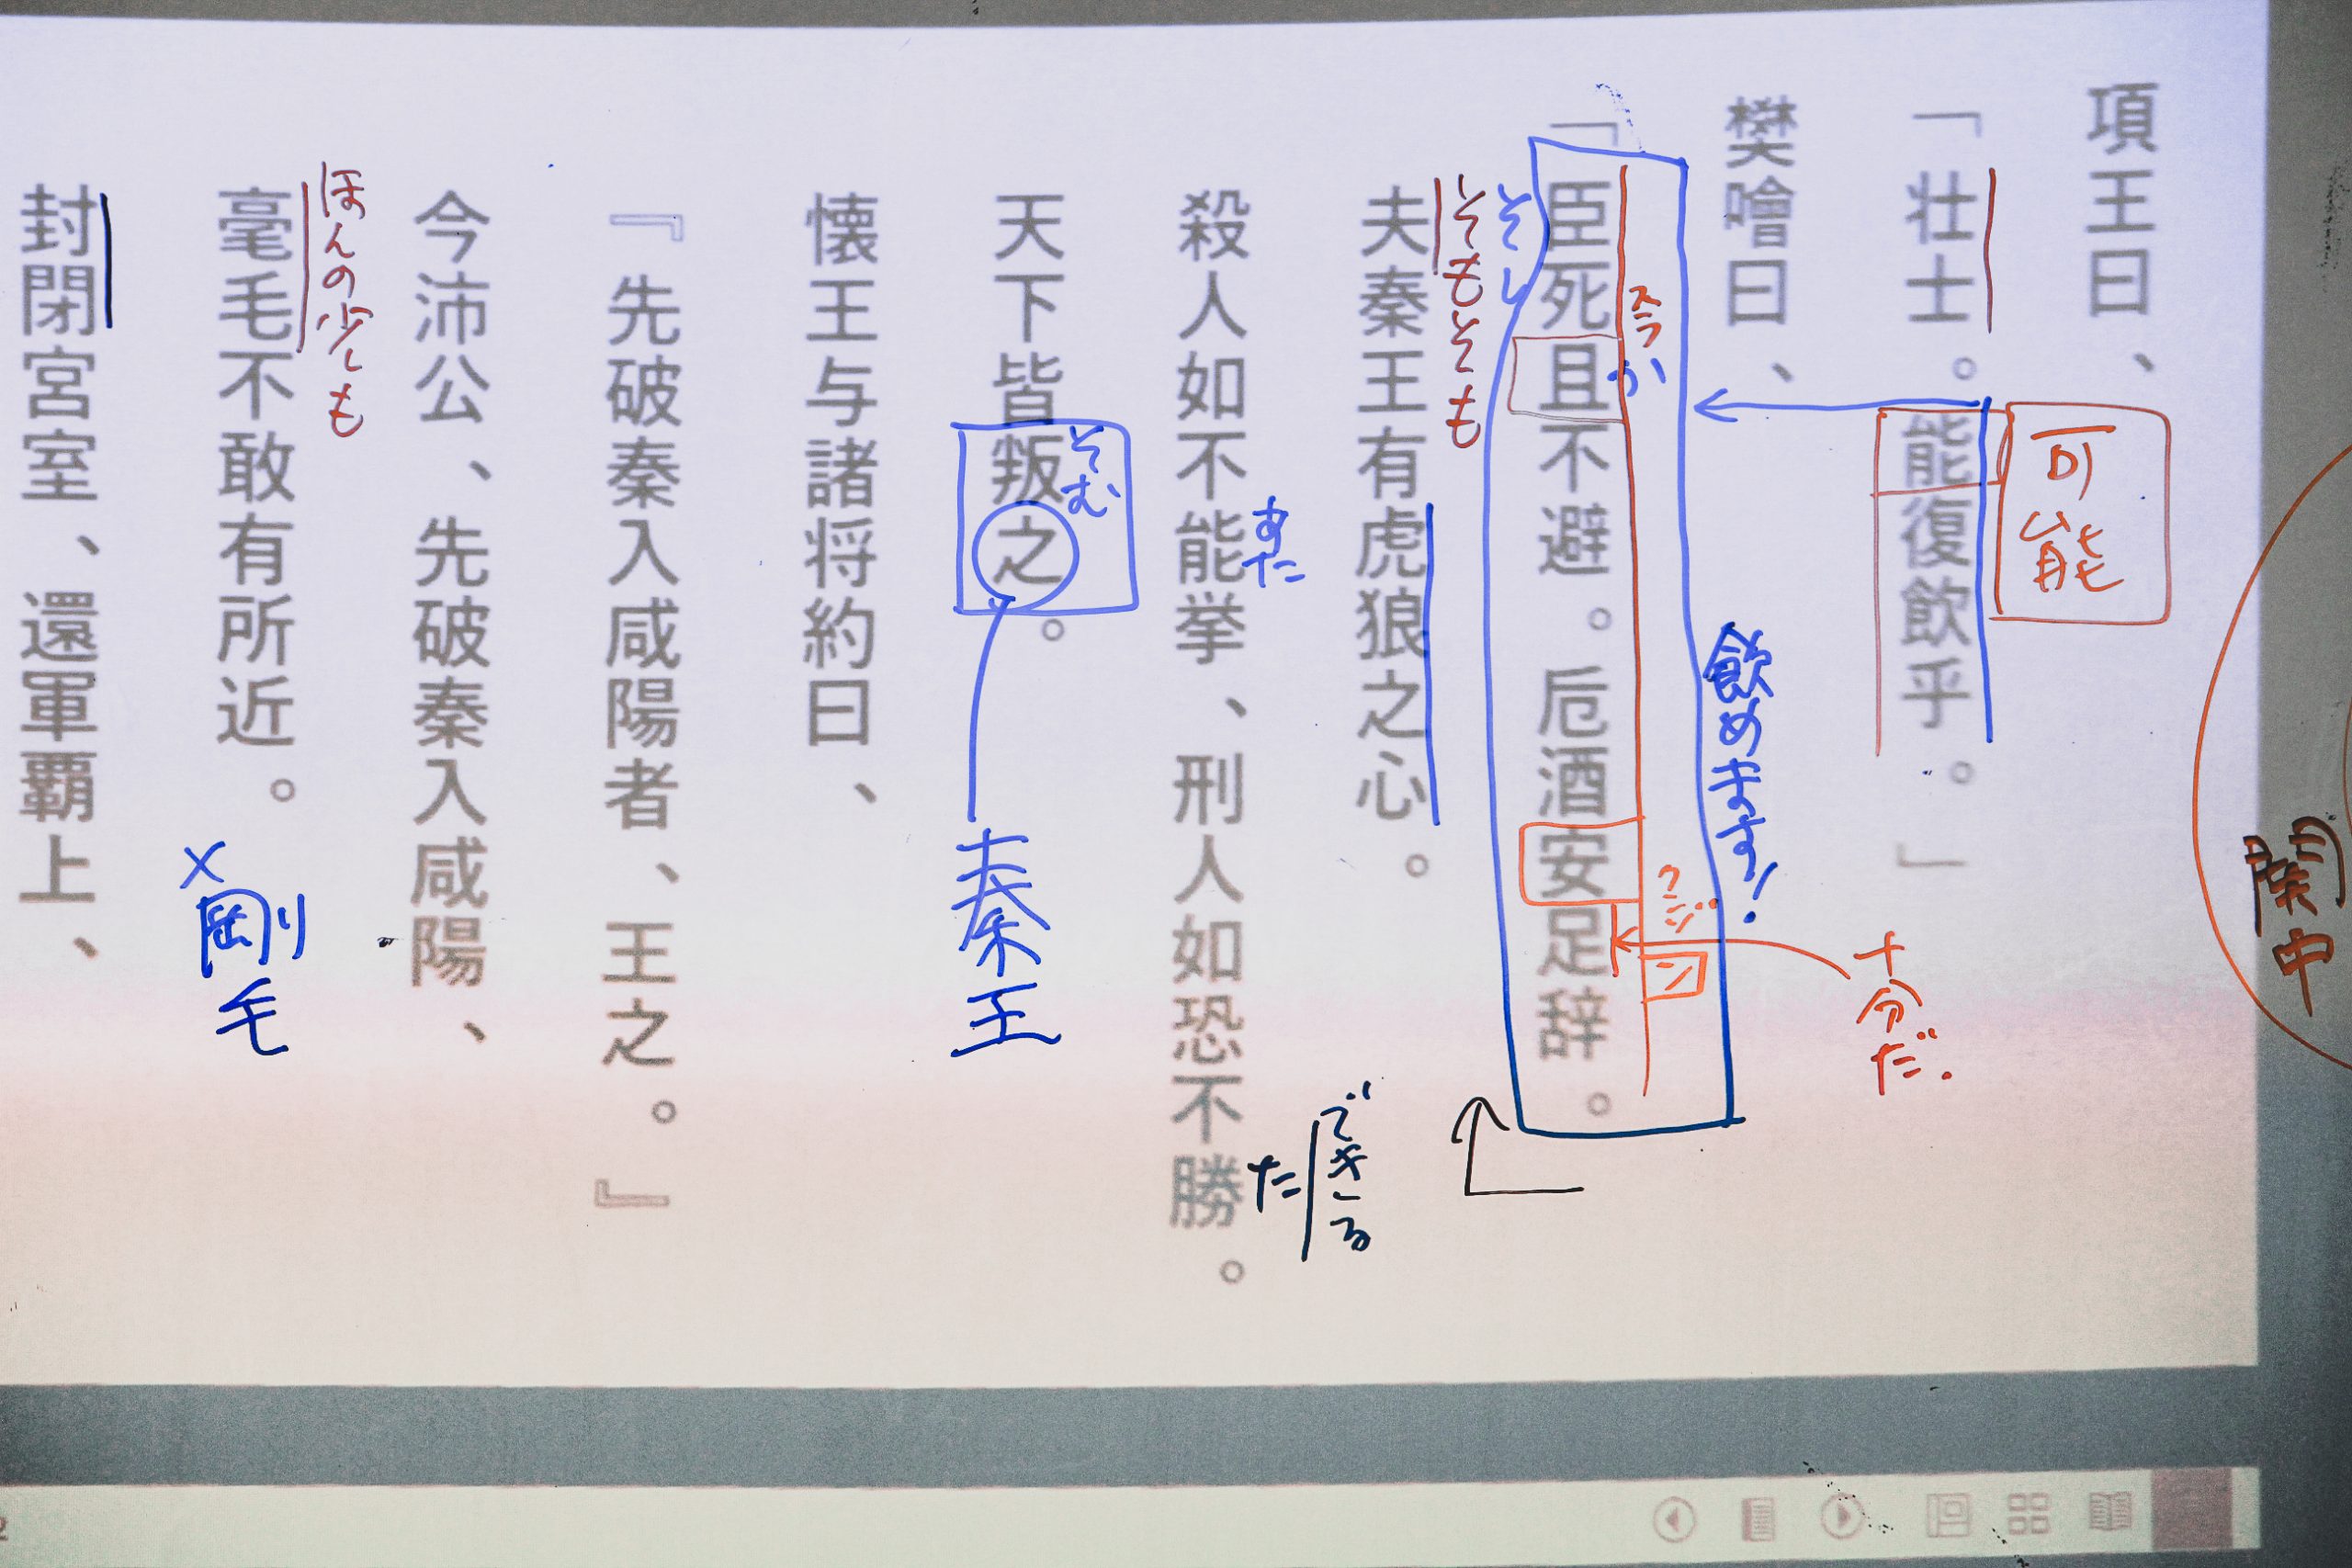 関中
項王曰、
可能
「壮士。能復飲乎。」
樊噲曰、
十分だ.
飲めます!
スラ
か
ン
「臣死且不避。卮酒安足辞。
そもそも
夫秦王有虎狼之心。
できる
た
あた
殺人如不能挙、刑人如恐不勝。
そむ
天下皆叛之。
秦王
懐王与諸将約曰、
『先破秦入咸陽者、王之。』
今沛公、先破秦入咸陽、
ほんの少しも
毫毛不敢有所近。
×剛毛
封閉宮室、還軍覇上、